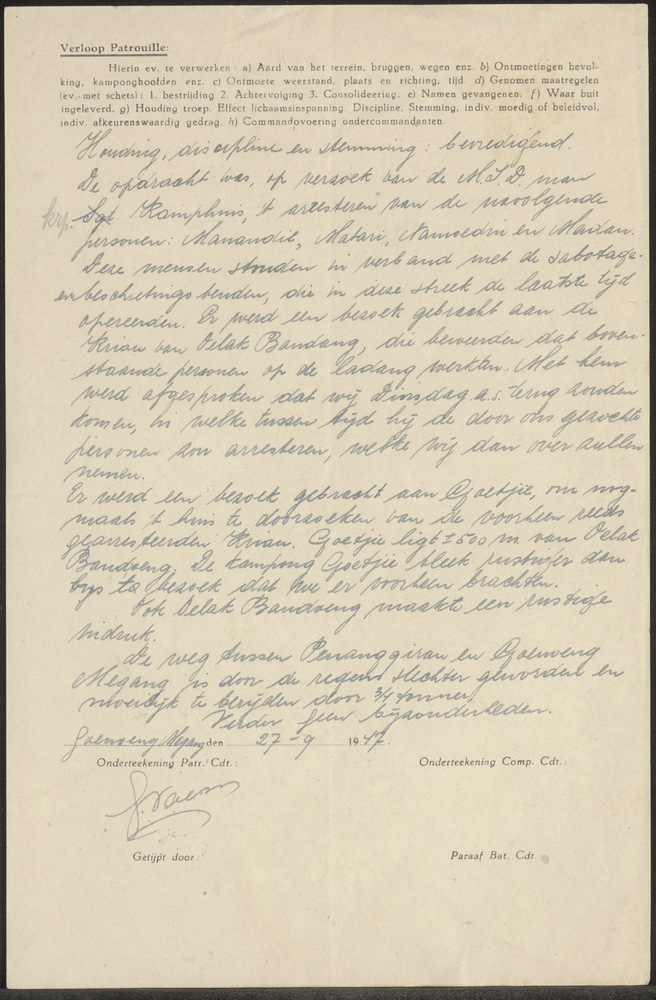 Verloop Patrouille:
Hierin ev. te verwerken: a) Aard van het terrein, bruggen, wegen enz. b) Ontmoetingen bevol-
king, kamponghoofden enz. c) Ontmoete weerstand, plaats en richting, tijd. d) Genomen maatregelen
(ev. met schets): 1. bestrijding 2. Achtervolging 3. Consolideering. e) Namen gevangenen. f) Waar buit
ingeleverd. g) Houding troep. Effect lichaamsinspanning. Discipline, Stemming, indiv. moedig of beleidvol,
indiv. afkeurenswaardig gedrag. h) Commandovoering ondercommandanten.
Houding, discipline en stemming: bevredigend.
De opdracht was, op verzoek van de M.I.D. man
krp. Sgt. Kamphuis, 't arresteren van de navolgende
personen: Manandie, Matari, Namoedin en Madan.
Deze mensen stonden in verband met de sabotage-
en beschietings benden, die in deze streek de laatste tijd
opereerden. Er werd een bezoek gebracht aan de
Krian van Pelak Bandang, die beweerden dat boven-
staande personen op de ladang werkten. Met hem
werd afgesproken dat wij Dinsdag a.s. terug zouden
komen, in welke tussen tijd hij de door ons gezochte
personen zou arresteren, welke wij dan over zullen
nemen.
Er werd een bezoek gebracht aan Goetjie, om nog-
maals 't huis te doorzoeken van de voorheen reeds
gearresteerden Krian. Goetjie ligt ± 500 m. van Pelak
Bandoeng. De kampong Goetjie bleek rustiger dan
bezoek dat we er voorheen brachten.
Ook Pelak Bandoeng maakte een rustige
indruk.
De weg tussen Penanggiran en Goenoeng
Megang is door de regens slechter geworden en
moeilijk te berijden door 3/4 tonner.
Verder geen bijzonderheden.
Goenoeng Megang den 27-9 1947.
Onderteekening Patr. Cdt.: Onderteekening Comp. Cdt.:
Getijpt door: Paraaf Bat. Cdt.